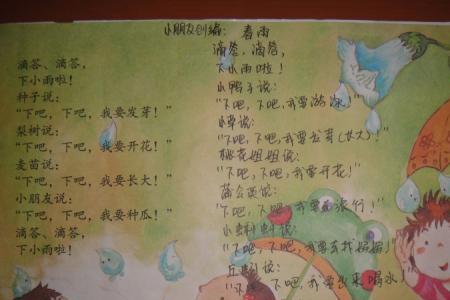 滴答、滴答，
下小雨啦！
种子说：
“下吧，下吧，我要发芽！”
梨树说：
“下吧，下吧，我要开花！”
麦苗说：
“下吧，下吧，我要长大！”
小朋友说：
“下吧，下吧，我要种瓜！”
滴答、滴答，
下小雨啦！
小朋友创编： 春雨
滴答，滴答，
下小雨啦！
小鸭子说：
“下吧，下吧，我要游泳！”
小草说：
“下吧，下吧，我要发芽（长大）！”
桃花姐姐说：
“下吧，下吧，我要开花！”
蒲公英说：
“下吧，下吧，我要去旅行！”
小蝌蚪说：
“下吧，下吧，我要去找妈妈！”
丘蚓说：
“下吧，下吧，我要出来喝水！